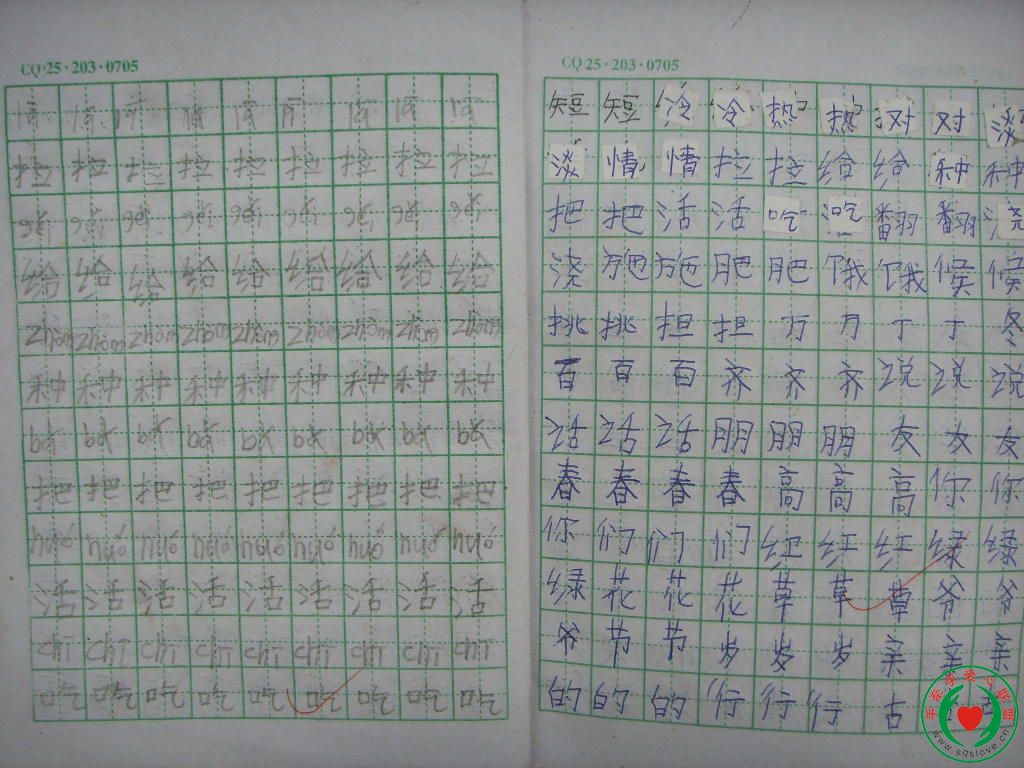 CQ·25·203·0705
lā lā lā lā lā lā lā lā lā
拉 拉 拉 拉 拉 拉 拉 拉 拉
gěi gěi gěi gěi gěi gěi gěi gěi gěi
给 给 给 给 给 给 给 给 给
zhòng zhòng zhòng zhòng zhòng zhòng zhòng zhòng zhòng
种 种 种 种 种 种 种 种 种
bǎ bǎ bǎ bǎ bǎ bǎ bǎ bǎ bǎ
把 把 把 把 把 把 把 把 把
huó huó huó huó huó huó huó huó huó
活 活 活 活 活 活 活 活 活
chī chī chī chī chī chī chī chī chī
吃 吃 吃 吃 吃 吃 吃 吃 吃
CQ·25·203·0705
短 短 冷 冷 热 热 对 对 淡
淡 情 情 拉 拉 给 给 种 种
把 把 活 活 吃 吃 翻 翻 浇
浇 施 施 肥 肥 饿 饿 候 候
挑 挑 担 担 万 万 丁 丁 冬
百 百 百 齐 齐 齐 说 说 说
话 话 话 朋 朋 朋 友 友 友
春 春 春 春 高 高 高 你 你
你 们 们 们 红 红 红 绿 绿
绿 花 花 花 草 草 草 爷 爷
爷 节 节 岁 岁 岁 亲 亲 亲
的 的 的 行 行 行 古 古
手牵手爱心联盟
www.sqslove.cn